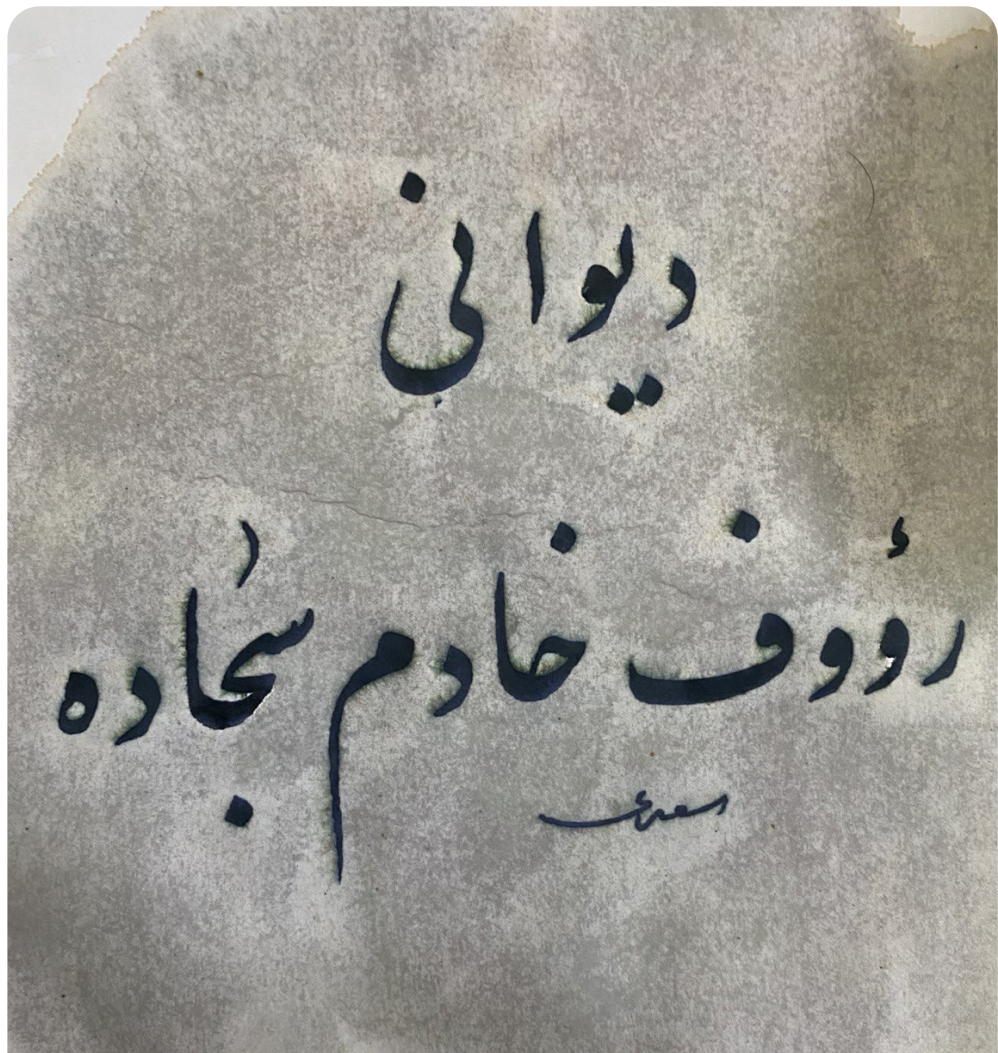 دیوانی
رؤوف خادم سجاده